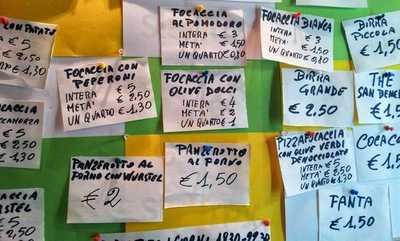 CON PATATE
€ 5
€ 2,50
€ 1,30
FOCACCIA
AL POMODORO
INTERA € 3
META' € 1,50
UN QUARTO € 0,80
FOCACCIA BIANCA
INTERA € 3
META' € 1,50
UN QUARTO € 0,80
BIRRA
PICCOLA
€ 1,50
FOCACCIA CON
PEPERONI
INTERA € 5
META' € 2,50
UN QUARTO € 1,30
FOCACCIA CON
OLIVE DOLCI
INTERA € 4
META' € 2
UN QUARTO € 1
BIRRA
GRANDE
€ 2,50
THE
SAN BENE
€ 1,50
€ 5
€ 2,50
€ 1,30
PANZEROTTO AL
FORNO CON WURSTEL
€ 2
PANZEROTTO
AL FORNO
€ 1,50
PIZZA FOCACCIA
CON OLIVE VERDI
DENOCCIOLATE
INTERA € 5
META' € 2,50
UN QUARTO € 1,30
COCACO
€ 1,50
€ 5
€ 2,50
FANTA
€ 1,50
GIORNI 18,30 - 19,30